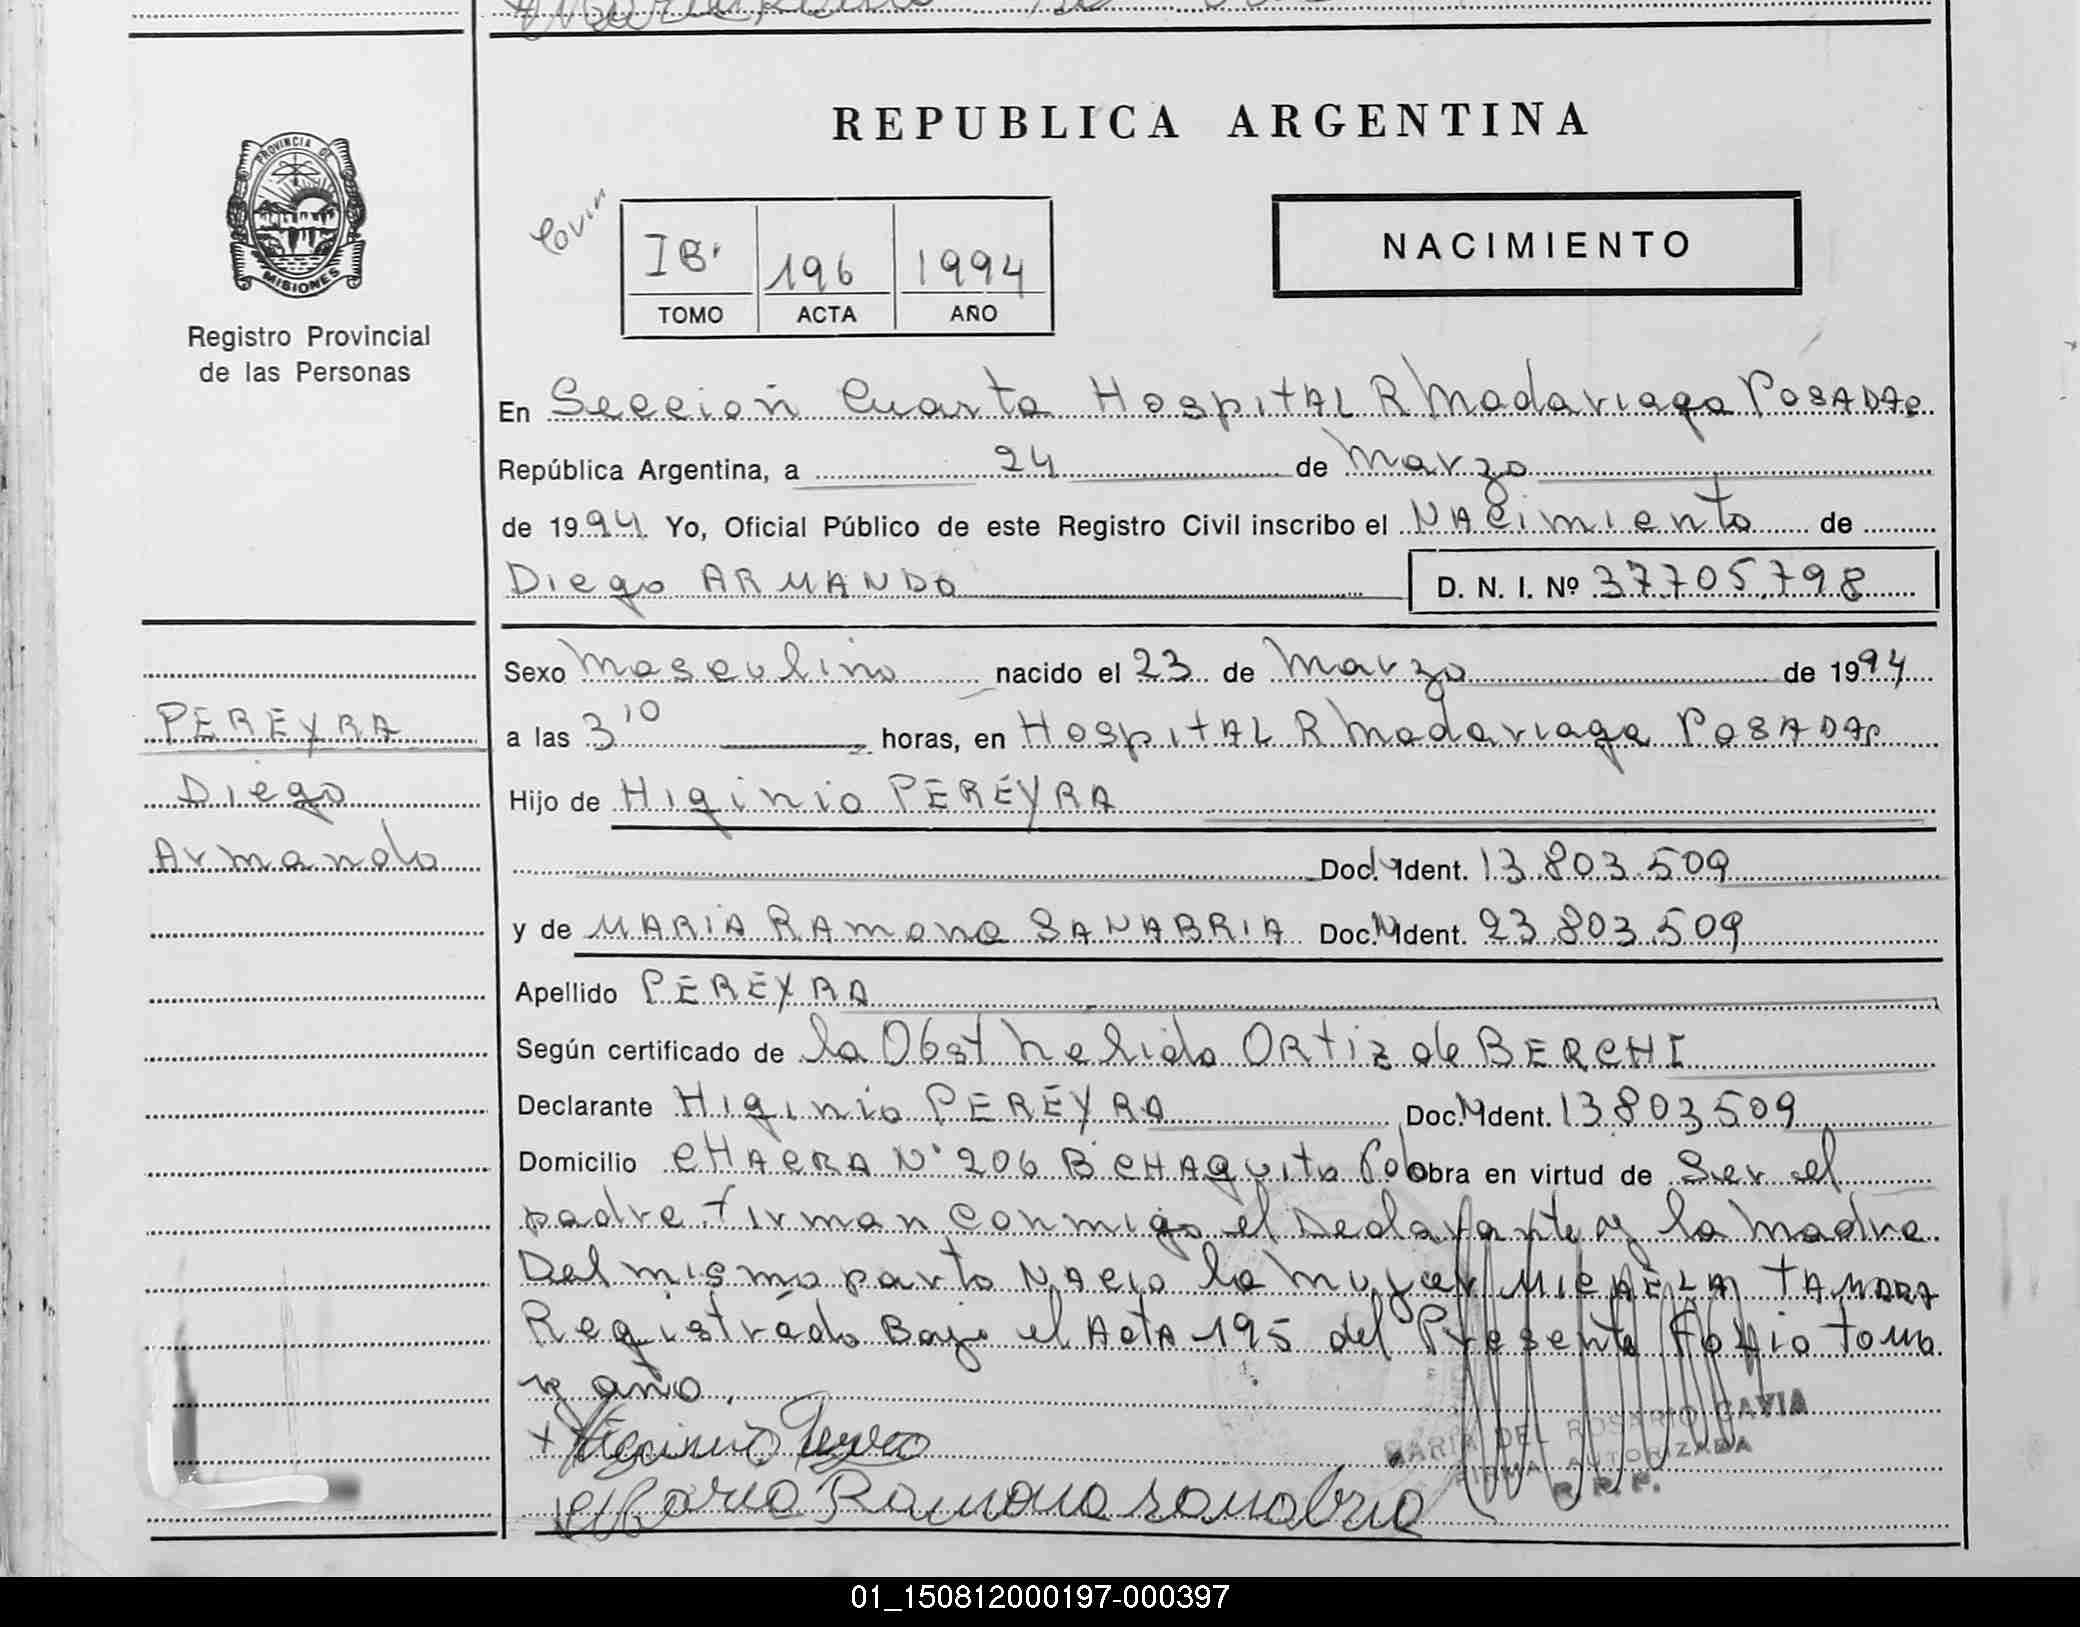 REPUBLICA ARGENTINA
PROVINCIA DE
MISIONES
Registro Provincial
de las Personas
IB' 196 1994
TOMO ACTA AÑO
NACIMIENTO
En Sección Cuarta HospitAL R Madariaga POSADAS
República Argentina, a 24 de Marzo
de 1994. Yo, Oficial Público de este Registro Civil inscribo el NAcimiento de
Diego ARMANDO D. N. I. Nº 37.705.798
Sexo Masculino nacido el 23 de Marzo de 1994
PEREYRA
a las 3 10 horas, en HospitAL R Madariaga POSADAS
Diego
Hijo de Higinio PEREYRA
Armando
Doc. Ident. 13.803.509
y de MARIA RAmona SANABRIA Doc. N Ident. 23.803.509
Apellido PEREYRA
Según certificado de la Obst Nelida ORtiz de BERCHI
Declarante Higinio PEREYRA Doc. N Ident. 13.803.509
Domicilio CHACRA N° 206 B CHAquito Pob obra en virtud de Ser el
padre. Firman conmigo el Declarante y la Madre.
Del mismo parto NAcio la mujer MICAELA TAMARA
Registrado Bajo el ActA 195 del Presente Folio tomo
y año.
Higinio Pereyra
MARIA DEL ROSARIO GAVIA
FIRMA AUTORIZADA
R. P. P.
Maria Ramona Sanabria
01_150812000197-000397